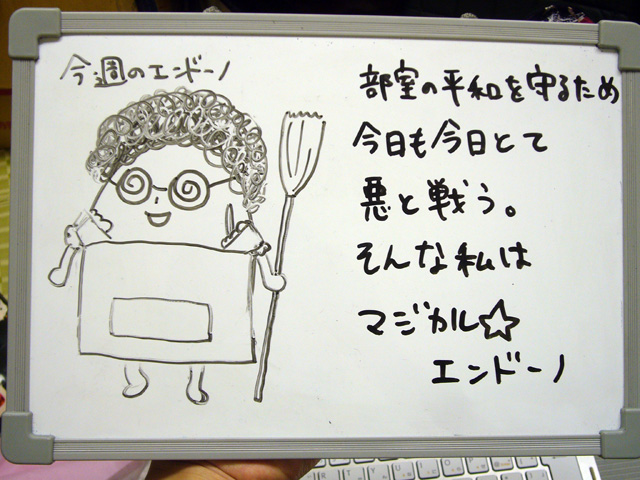 今週のエンドーノ
部室の平和を守るため
今日も今日とて
悪と戦う。
そんな私は
マジカル☆
エンドーノ